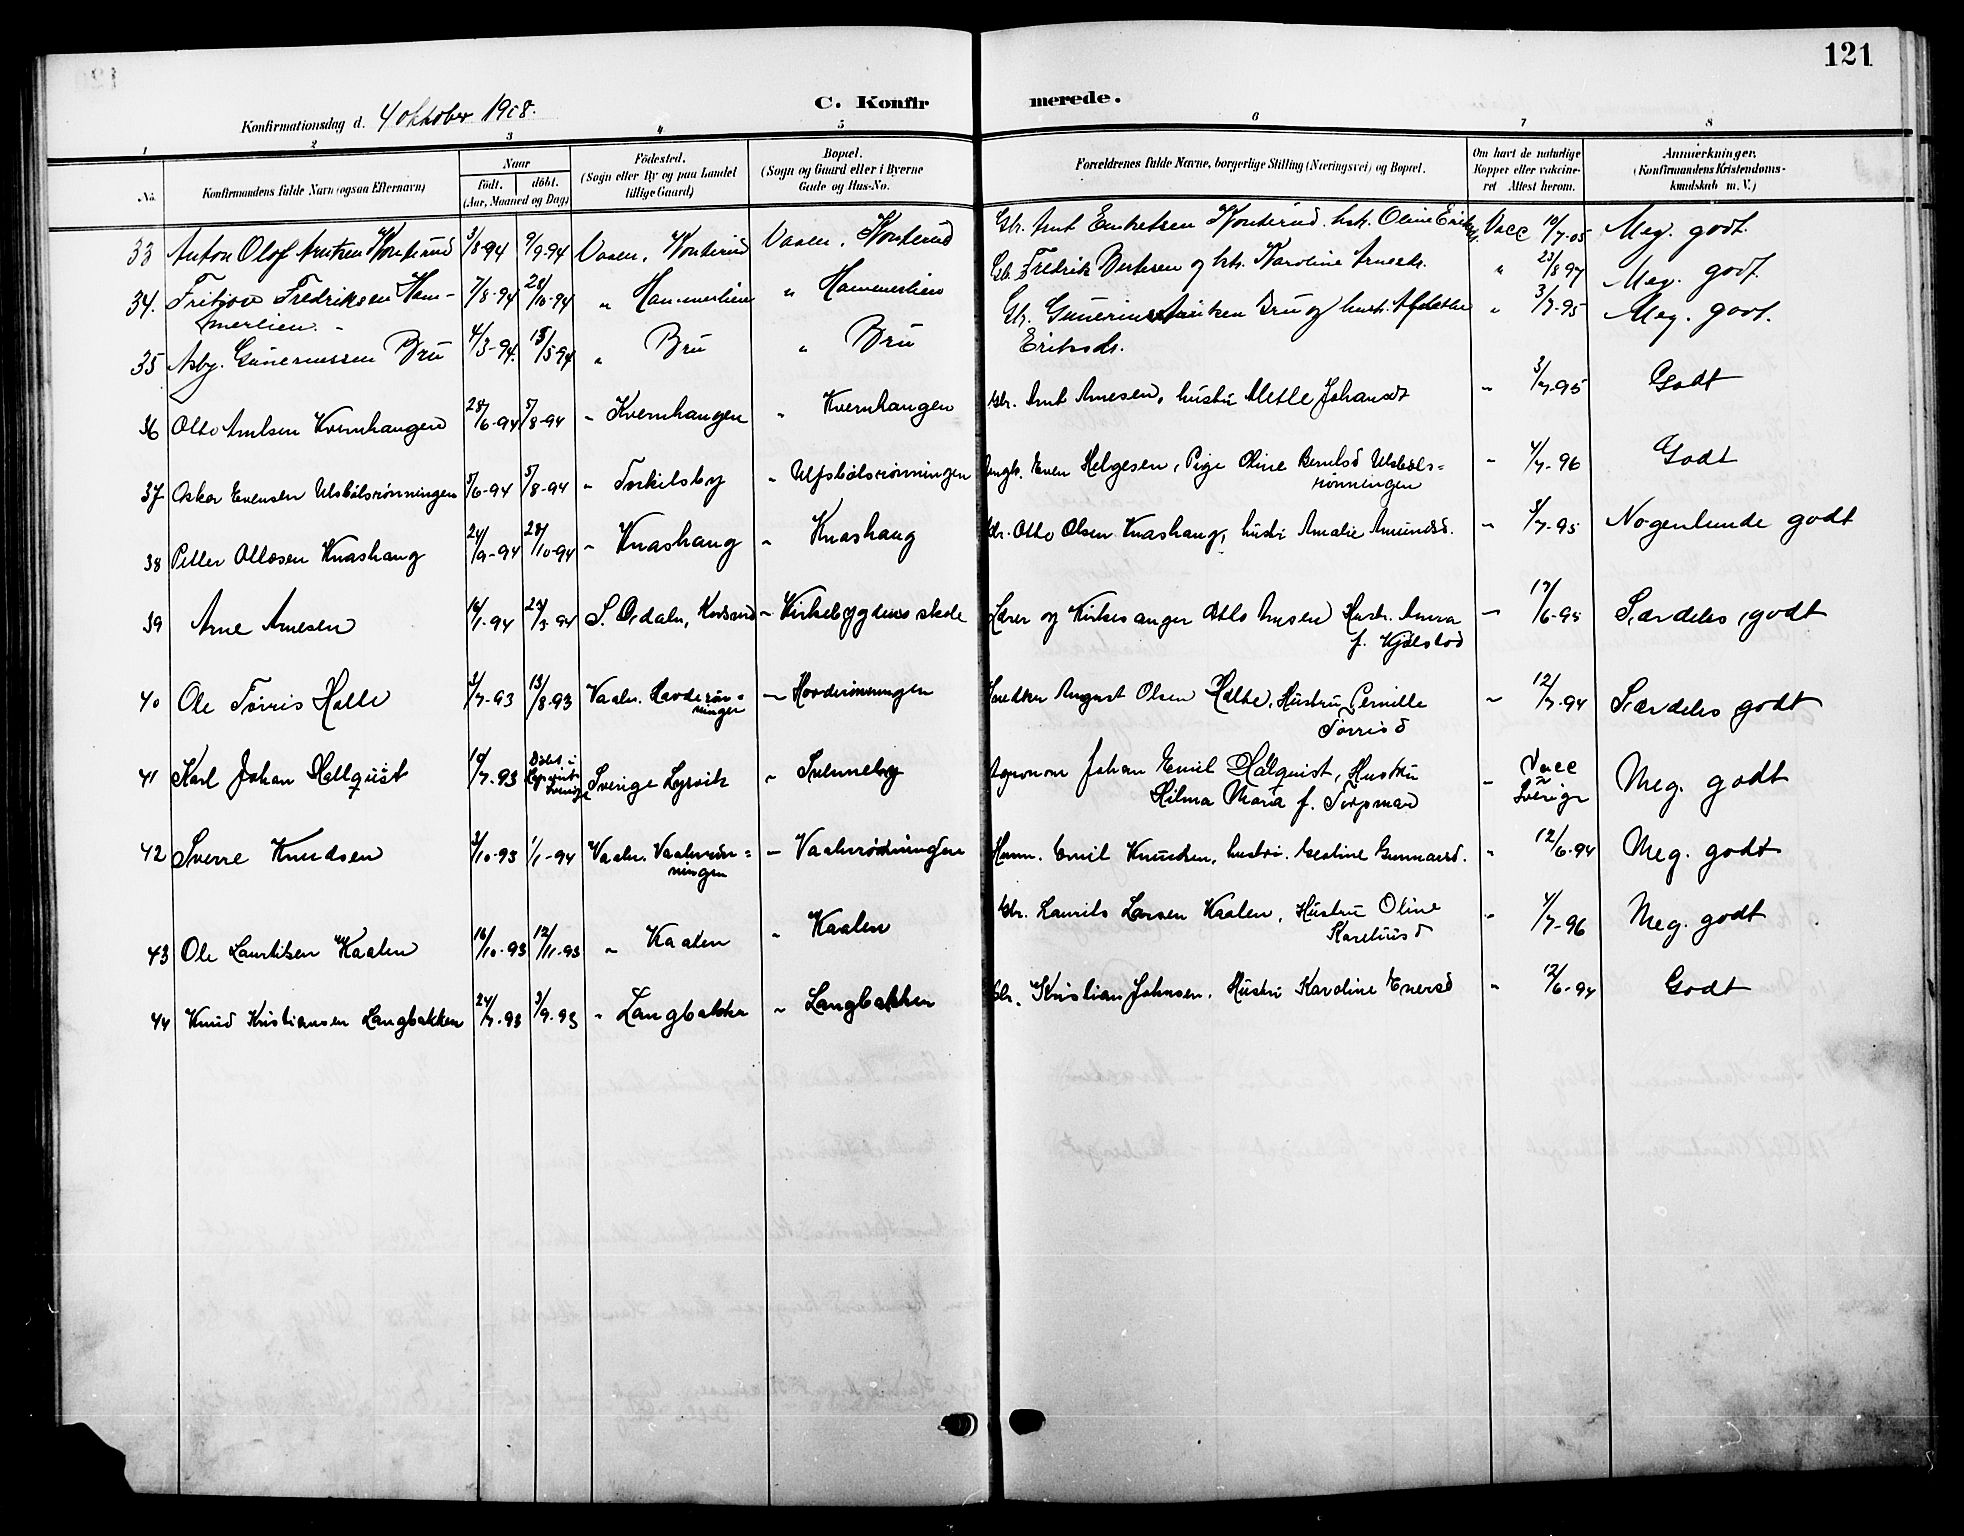 121
Konfirmationsdag d. 4 oktober 1908.
C. Konfirmerede.
1 2 3 4 5 6 7 8
No.
Konfirmandens fulde Navn (ogsaa Efternavn)
Naar
födt. döbt.
(Aar, Maaned og Dag)
Födested.
(Sogn eller By og paa Landet
tillige Gaard)
Bopæl.
(Sogn og Gaard eller i Byerne
Gade og Hus-No.
Forældrenes fulde Navne, borgerlige Stilling (Næringsvei) og Bopæl.
Om havt de naturlige
Kopper eller vakcine-
ret Attest herom.
Anmærkninger.
(Konfirmandens Kristendoms-
kundskab m. V.)
33 Anton Olof Arntzen Konterud 3/8-94 9/9-94 Vaaen, Konterud Vaaen, Konterud Gbr. Arnt Konterud hst. Oline Vacc 10/7-05 Meg. godt.
34. Fritjov Fredriksen Ham- 7/8-94 28/10-94 " Hammerlien " Hammerlien Gb. Fredrik Berntsen og hst. Karoline " 23/8 97 Meg. godt.
merlien.
35 Asbj. Gunerussen Bru 4/3-94. 13/5-94 " Bru " Bru Gbr. Gunerius Bru og hust. " 3/7-95 Meg. godt.
Eriksdr.
36 Otto Arntsen Kvernhaugen 28/6-94 5/8-94 " Kvernhaugen " Kvernhaugen Gbr. Arnt Arnesen, hustru Mette Johansd " 3/7-95 Godt
37 Oskar Evensen Ulsbölsrönningen 5/6-94 5/8-94 " Torkilsby " Ulfsbölsrönningen Ungk. Even Helgesen, Pige Oline Berntsd Ulsböls=
rönningen " 4/7-96 Godt
38 Petter Ottosen Knashaug 24/9-94 28/10-94 " Knashaug " Knashaug Gbr. Otto Olsen Knashaug, hustr Amalie Amundsd. " 3/7-95 Nogenlunde godt
39 Arne Arnesen 16/1-94 27/3 94 S. Odalen, " Kirkebygdens skole Lærer og Kirkesanger Otto Arnesen Hustr. Anna
f. Kjölstad " 17/6-95 Særdeles godt
40 Ole Törris Holte 3/7-93 13/8-93 Vaaln. Havderön=
ningen " Havderönningen Snedker August Olsen Holte, Hustru Pernille
Törrisd " 12/7-94 Særdeles godt
41 Karl Johan Hallquist 10/7-93 Döbt i
Lysvik
Sverige Sverige Lysvik " Svenneby Agronom Johan Emil Halquist, Hustru
Hilma Maria f. Torpman " Vacc
i
Sverige Meg. godt
42 Sverre Knudsen 3/10-93 1/1-94 Vaaln. Vaalerrön=
ningen " Vaalerrönningen Emil Knudsen, hustru. Gunnarsd. " 12/6-94 Meg. godt
43 Ole Lauritsen Kaalen 16/10-93 12/11-93 " Kaalen " Kaalen Gbr. Laurits Larsen Kaalen, Hustru Oline
Kareliusd " 4/7-96 Meg. godt
44 Knud Kristiansen Langbakken 24/7-93 3/9-93 " Langbakken " Langbakken Gbr. Kristian Johnsen. Hustru Karoline Enersd " 12/6-94 Godt